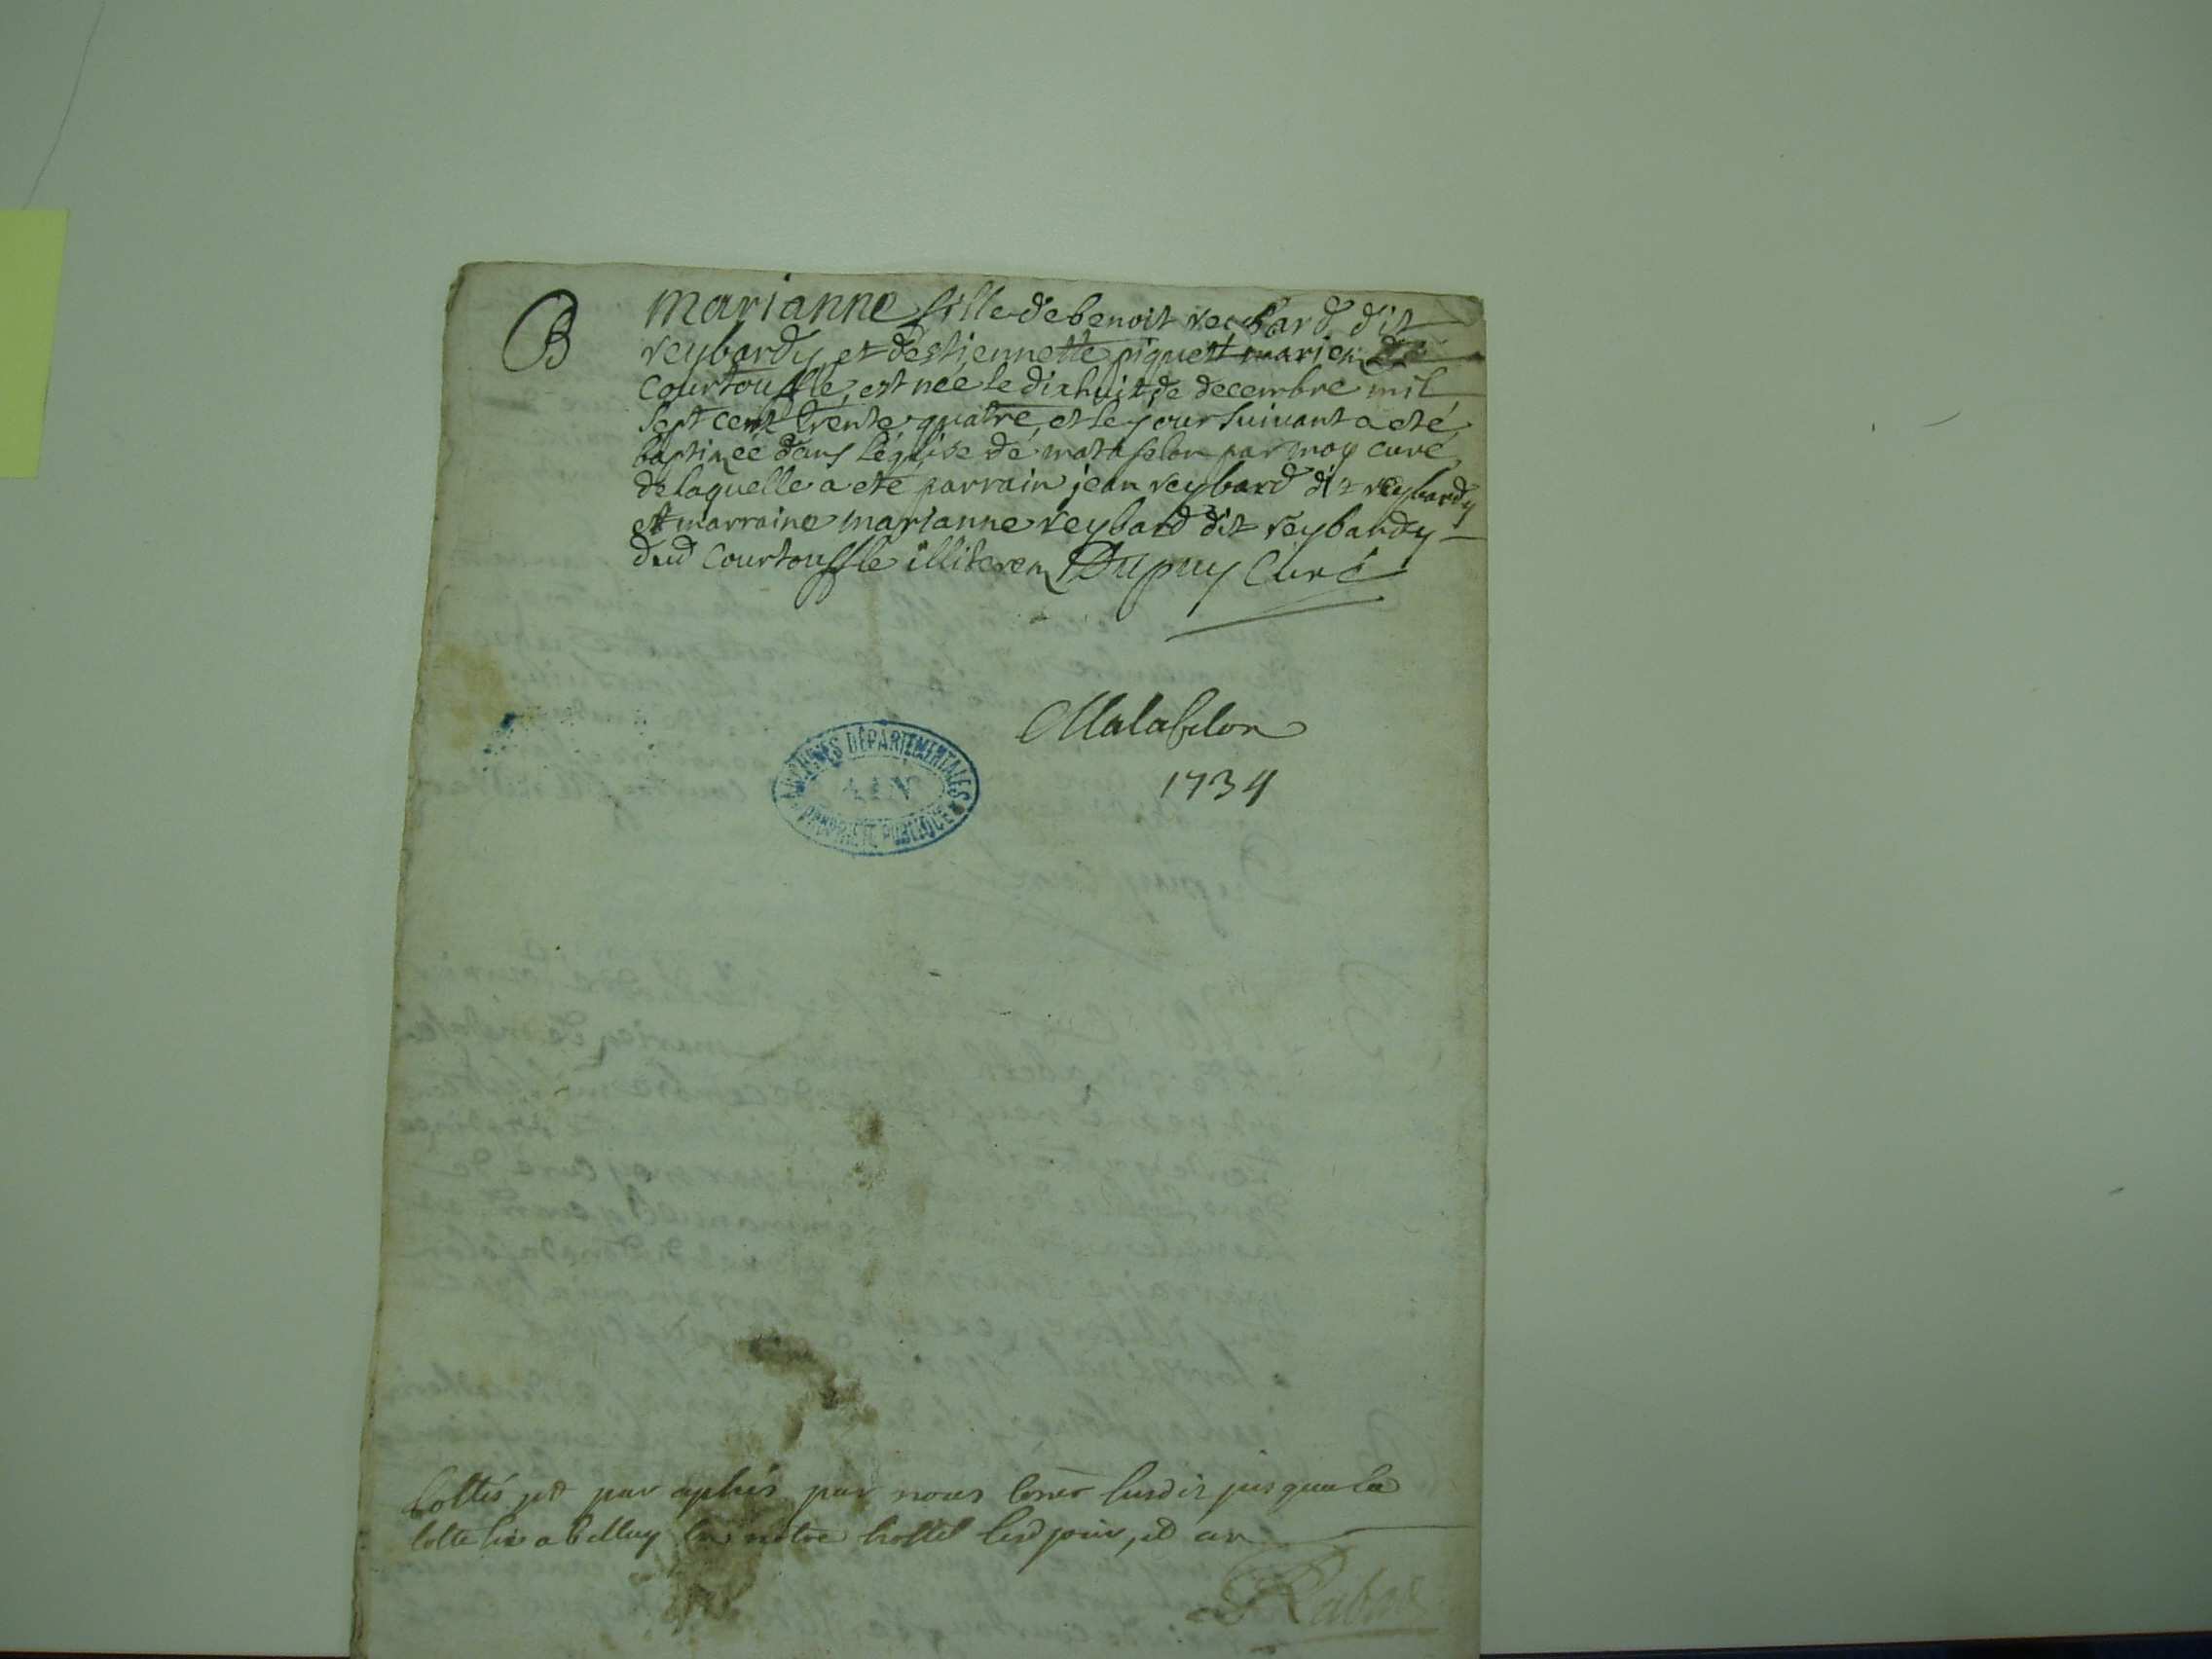 B
Marianne fille de benoit reybard dit
reybardy et destiennette piquet mariez de
Courtouffle, est née le dixhuit de decembre mil
sept cent trente quatre, et le jour suivant a eté
baptizée dans l'église de matafelon par moy curé
de laquelle a eté parrain jean reybard dit reybardy
et marraine marianne reybard dit reybardy
dud Courtouffle illiterez Dupuy Curé
Matafelon
1734
ARCHIVES DÉPARTEMENTALES
AIN
PROPRIÉTÉ PUBLIQUE
Cottés et par aphés par nous susdit jusqua la
Cotte six a belley en notre hostel lesd jour, et an